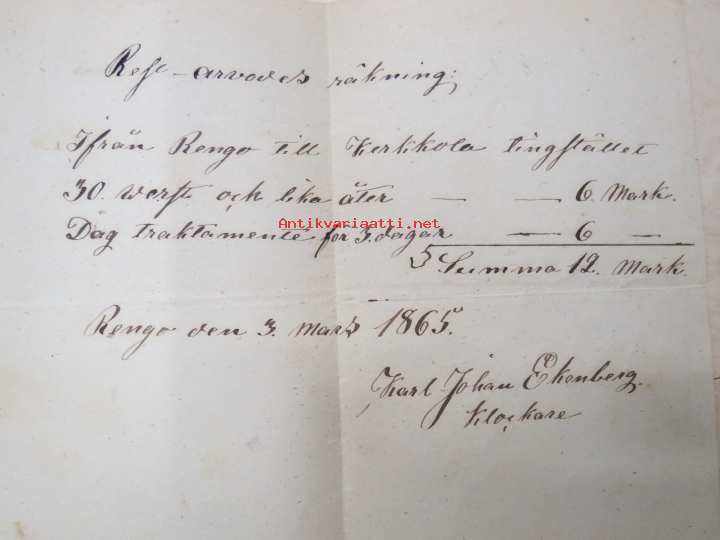 Rese-arvodes räkning;
Ifrån Rengo till Kerkkola tingstället
30. werst och lika åter — — 6. Mark.
Antikvariaatti.net
Dag traktamente för 3. dagar — 6 —
Summa 12. Mark.
Rengo den 3. Mars 1865.
Karl Johan Ekenberg.
Klockare